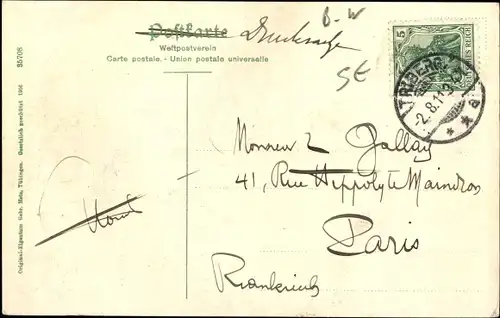 B-W
Postkarte Drucksache
Weltpostverein
Carte postale. - Union postale universelle
5€
5
DEUTSCHES REICH
TRIBERG
-2.8.11
* * a
Monsieur L Gallay
41, Rue Hippolyte Maindron
Paris
Frankreich
35708
Original-Eigentum Gebr. Metz, Tübingen. Gesetzlich geschützt 1906